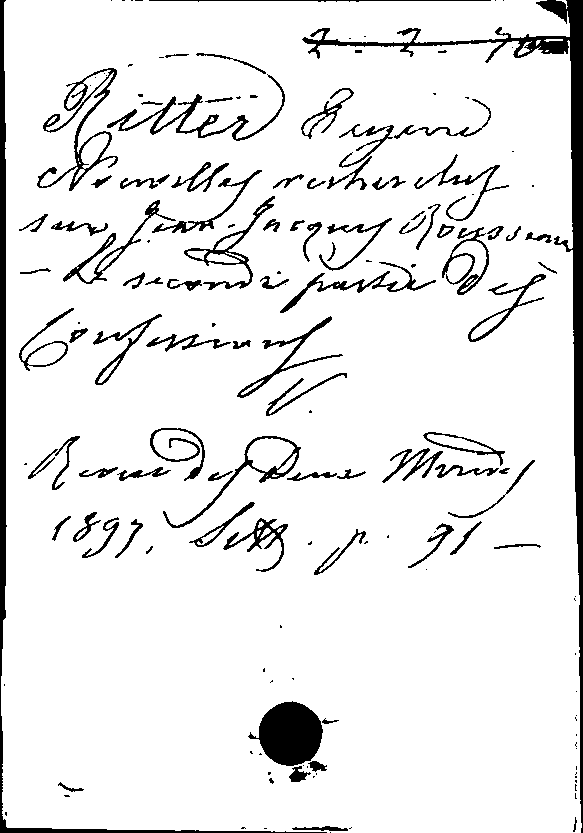 2. 2. 70
Ritter Eugenio
Nouvelles recherches
sur Jean-Jacques Rousseau
— La seconde partie des
Confessions
V.
Revue des Deux Mondes
1897, Sett. p. 91 —